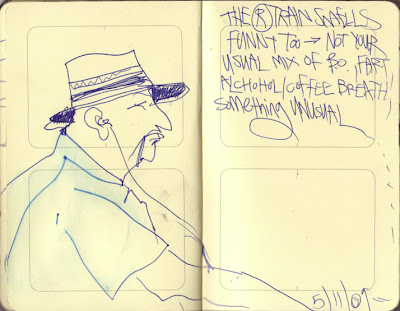 THE Ⓡ TRAIN SMELLS
FUNNY TOO → NOT YOUR
USUAL MIX OF BO, FART
ALCHOHOL/COFFEE BREATH,
SOMETHING UNUSUAL
5/11/09